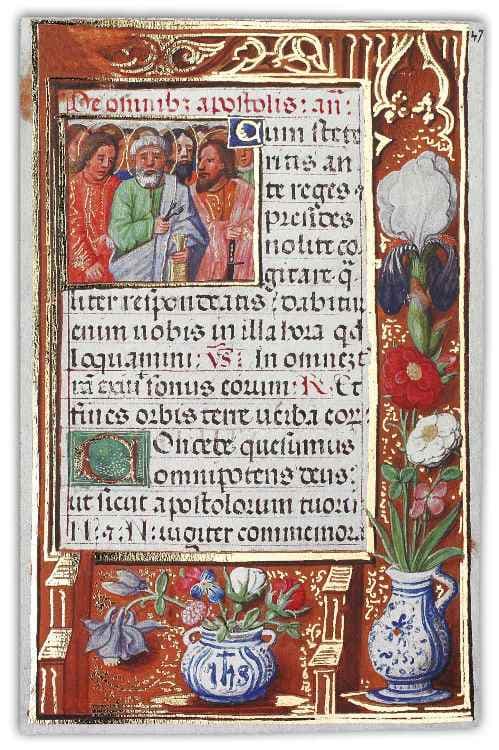 47
De omnibꝫ apostolis: añ:
Cum stete
ritis an
te reges ⁊
presides
nolite co
gitare q̃
liter respondeatis: dabitur
enim uobis in illa hora qđ
loquamini: V̄s: In omnez t
rã exiuit sonus eorum: R. Et
fines orbis terre uerba eoꝝ:
Concede quesumus
omnipotens deus:
ut sicut apostolorum tuorũ
N. ⁊ N: iugiter commemor
ihs